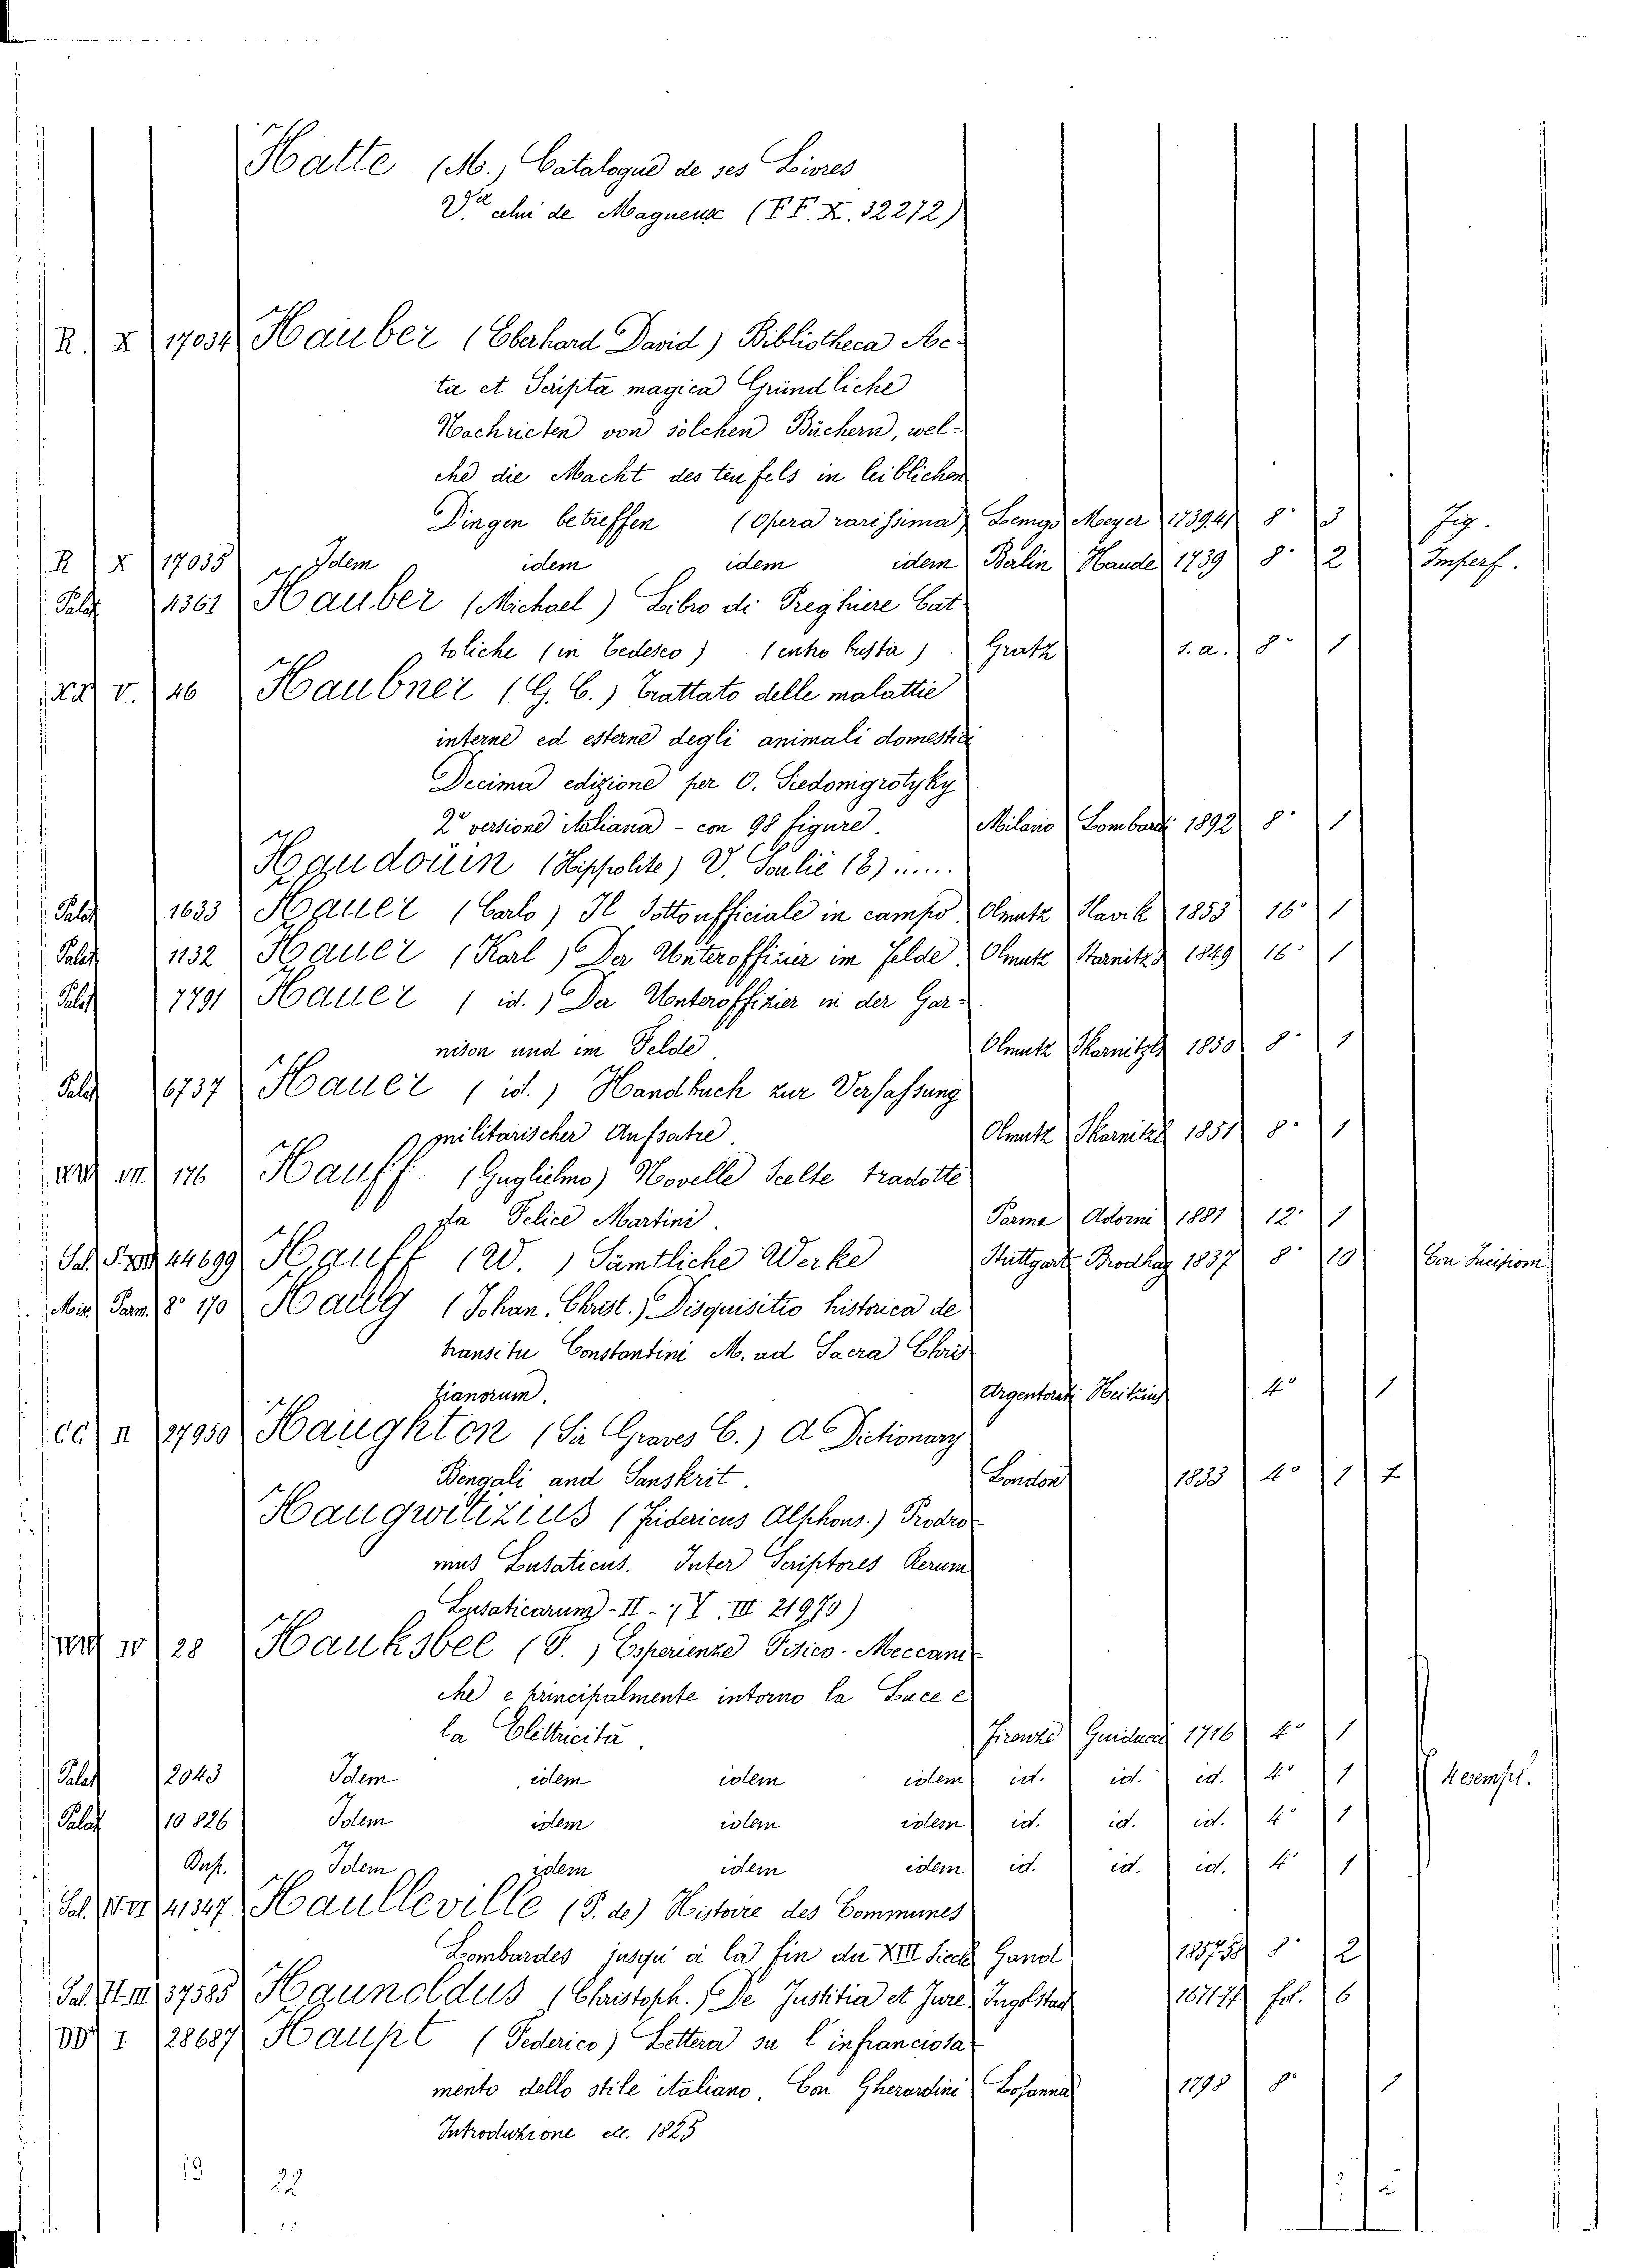 Hatte (M.) Catalogue de ses Livres
V. celui de Magneux (F F. X. 32212)
R. X 17034 Hauber (Eberhard David) Bibliotheca Ac-
ta et Scripta magica Gründliche
Nachricten von solchen Büchern, wel-
che die Macht des teufels in leiblichen
Dingen betreffen (Opera rarissima) Lemgo Meyer 173941 8° 3 Fig.
R X 17035 Idem idem idem idem Berlin Haude 1739 8° 2 Imperf.
Palat 4361 Hauber (Michael) Libro di Preghiere Cat-
toliche (in Tedesco) (entro busta) Gratz s. a. 8° 1
V. 46 Haubner (G. C.) Trattato delle malattie
interne ed esterne degli animali domestici
Decima edizione per O. Siedomgrotyky
2ª versione italiana - con 98 figure. Milano Lombardi 1892 8° 1
Haudouin (Hippolite) V. Soulié (8) .....
Palat 1623 Hauer (Carlo) Il Sottoufficiale in campo. Olmutz Slavik 1853 16° 1
Palat 1132 Hauer (Karl) Der Unterofficier im Felde. Olmutz Skarnitzs 1849 16° 1
Palat 7791 Hauer (id.) Der Unteroffizier in der Gar-
nison und im Felde. Olmutz Skarnitzls 1850 8° 1
Palat 6737 Hauer (id.) Handbuch zur Verfassung
militarischer Aufsatre. Olmutz Skarnitzl 1851 8° 1
VII 176 Hauff (Guglielmo) Novelle Scelte tradotte
da Felice Martini. Parma Adorni 1881 12° 1
44699 Hauff (W.) Sämtliche Werke Stuttgart Brodhag 1837 8° 10 Con Incisioni
Misc Parm. 8° 170 Haug (Johan. Christ.) Disquisitio historica de
transitu Constantini M. ad Sacra Chris
tianorum. Argentorati Heitzius 4° 1
CC II 27950 Haughton (Sir Graves C.) A Dictionary
Bengali and Sanskrit. London 1833 4° 1 7
Haugwitizius (Fidericus Alphons.) Prodro-
mus Lusaticus. Inter Scriptores Rerum
Lusaticarum - II - (Y. III 21970)
IV 28 Hauksbee (F.) Esperienze Fisico-Meccani-
che e principalmente intorno la Luce e
la Elettricità. Firenze Guiducci 1716 4° 1
Palat 2043 Idem idem idem idem id. id. id. 4° 1 Resempl.
Palat 10826 Idem idem idem idem id. id. id. 4° 1
Idem idem idem idem id. id. id. 4° 1
41347 Haulleville (P. de) Histoire des Communes
Lombardes jusqu'à la fin du XIII Siecle Gand 185758 8° 2
37585 Haunoldus (Christoph.) De Justitia et Jure. Ingolstad 167174 fol. 6
I 28687 Haupt (Federico) Lettera su l'infranciosa-
mento dello stile italiano. Con Gherardini Losanna 1798 8° 1
Introduzione ecc. 1825
22